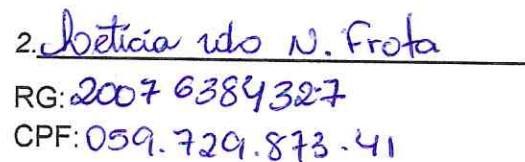 2. Letícia do N. Frota
RG: 20076384327
CPF: 059.729.873-41